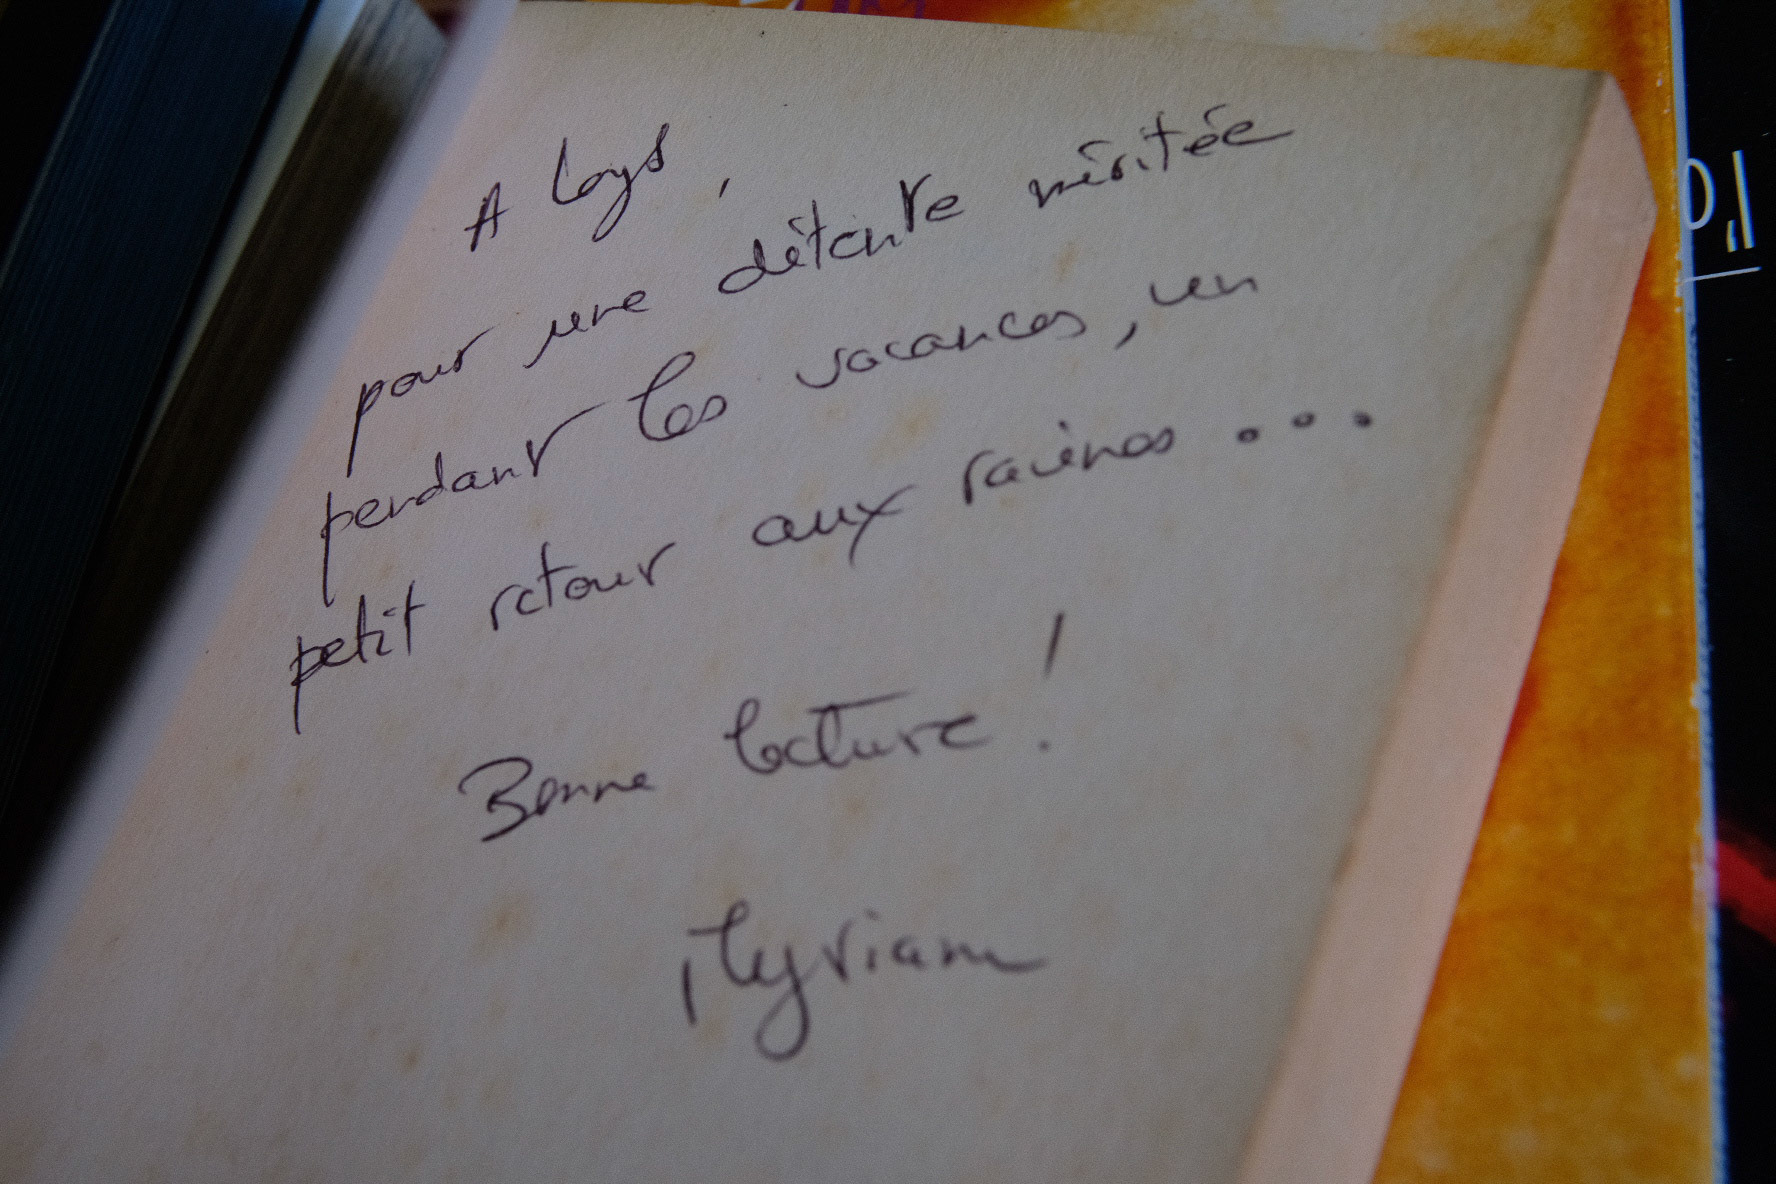 A Loys,
pour une détente méritée
pendant les vacances, un
petit retour aux racines...
Bonne lecture !
Myriam